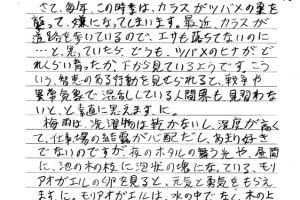 さて、毎年、この時季は、カラスがツバメの巣を
襲って、嫌になってしまいます。最近、カラスが
道路を歩いているので、エサも落ちてないのに
…と、思っていたら、どうも、ツバメのヒナがど
れくらい育ったか、下から見ているようです。こう
いう、智恵のある行動を見せられると、戦争や
異常気象で混乱している人間界も、見習わな
いと、と素直に思えます。
梅雨は、洗濯物は乾かないし、湿度が高く
て、仕事場の結露が心配だし、あまり好き
でないのですが、夜のホタルの舞う光や、昼間
に、池の木の枝に泡状の塊になっている、モリ
アオガエルの卵を見ると、元気と勇気をもらえ
ます。モリアオガエルは、水の中でなく、木の上